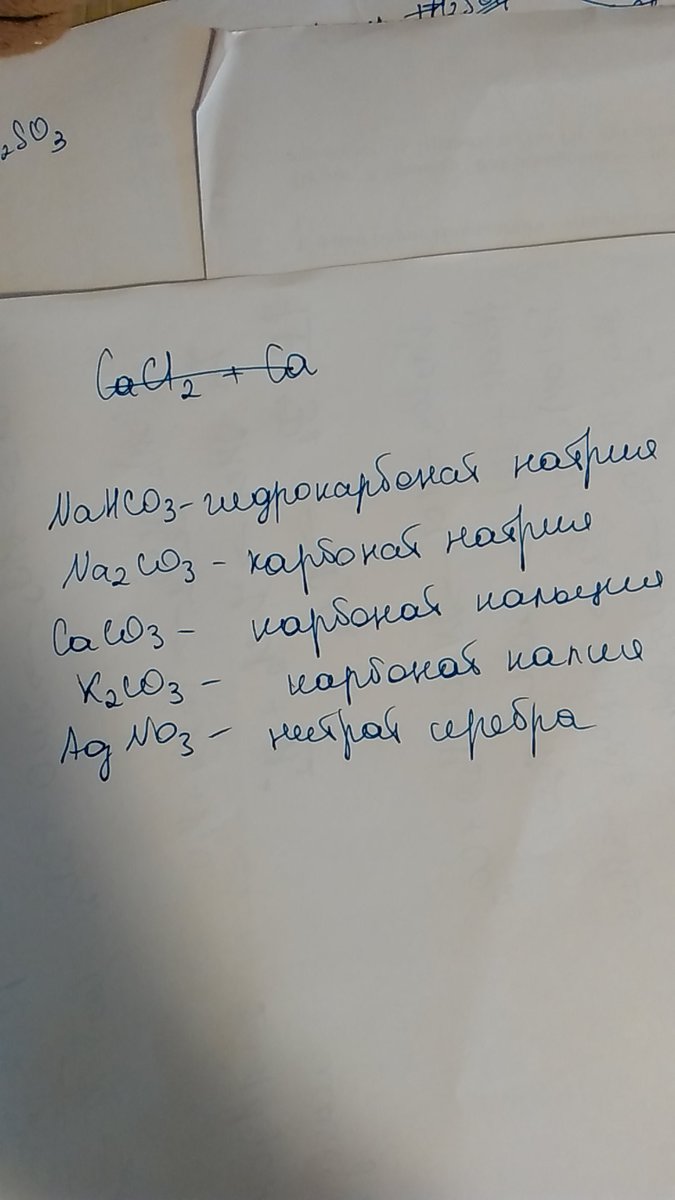 ₂SO₃
CaCl₂ + Ca
NaHCO₃ - гидрокарбонат натрия
Na₂CO₃ - карбонат натрия
CaCO₃ - карбонат кальция
K₂CO₃ - карбонат калия
AgNO₃ - нитрат серебра